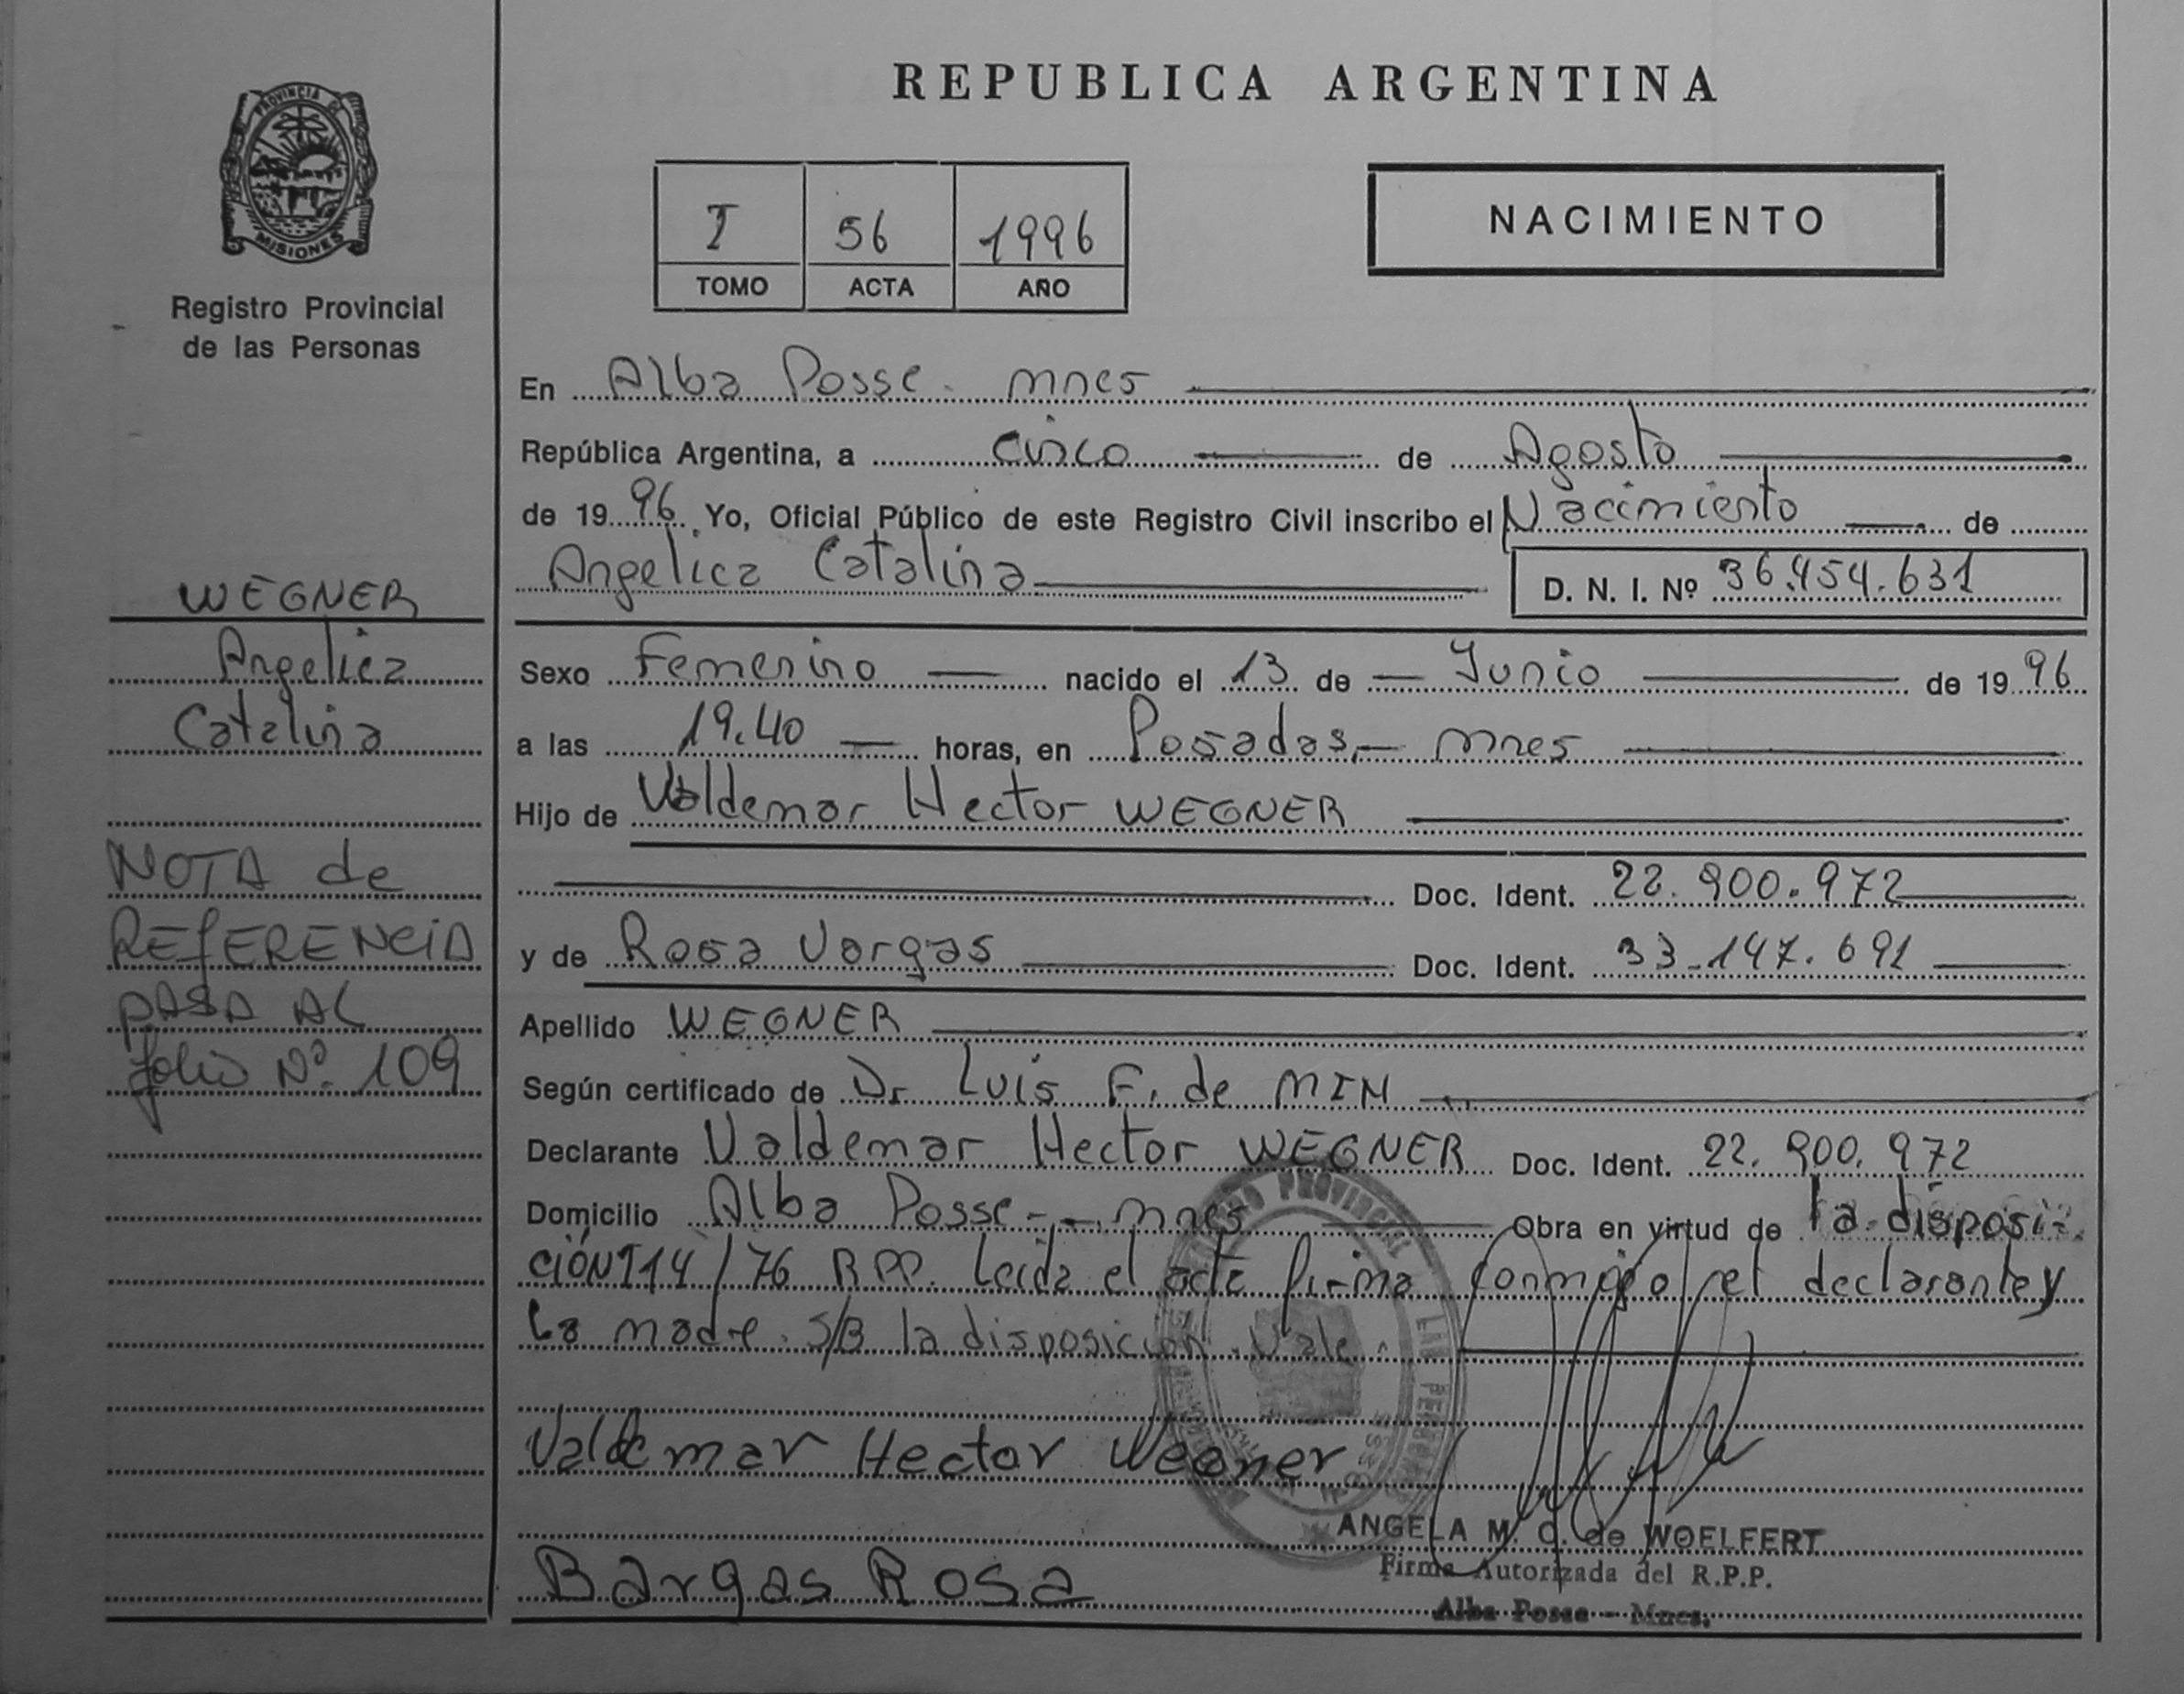 REPUBLICA ARGENTINA
PROVINCIA DE
MISIONES
Registro Provincial
de las Personas
I 56 1996
TOMO ACTA AÑO
NACIMIENTO
En Alba Posse - mnes
República Argentina, a cinco de Agosto
de 1996. Yo, Oficial Público de este Registro Civil inscribo el Nacimiento de
Angelica Catalina D. N. I. Nº 36.454.631
WEGNER
Angelica
Catalina
NOTA de
REfERENCiA
pASA AL
folio Nº 109
Sexo Femenino nacido el 13 de Junio de 1996
a las 19.40 horas, en Posadas, - mnes
Hijo de Valdemar Hector WEGNER
Doc. Ident. 22.900.972
y de Rosa Vargas Doc. Ident. 33.147.691
Apellido WEGNER
Según certificado de Dr Luis F. de MIN
Declarante Valdemar Hector WEGNER Doc. Ident. 22.900.972
Domicilio Alba Posse - mnes Obra en virtud de la disposi-
ción 114/76 RPP. Leida el acta firma conmigo el declarante y
la madre. S/B la disposición. Vale.
Valdemar Hector Wegner
ANGELA M. C. de WOELFERT
Firma Autorizada del R.P.P.
Alba Posse - Mnes.
Bargas Rosa